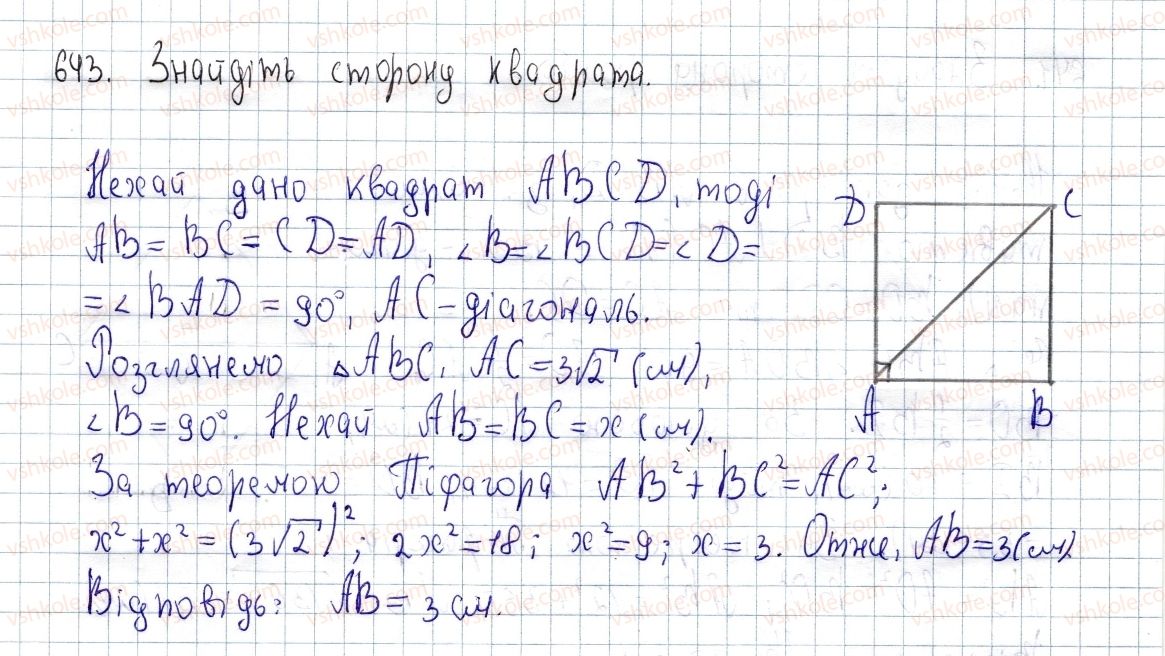 643. Знайдіть сторону квадрата.
Нехай дано квадрат ABCD, тоді
AB = BC = CD = AD, ∠B = ∠BCD = ∠D =
= ∠BAD = 90°, AC – діагональ.
Розглянемо △ABC. AC = 3√2 (см),
∠B = 90°. Нехай AB = BC = x (см).
За теоремою Піфагора AB² + BC² = AC²;
x² + x² = (3√2)²; 2x² = 18; x² = 9; x = 3. Отже, AB = 3 (см)
Відповідь: AB = 3 см.
D C
A B
vshkole.com